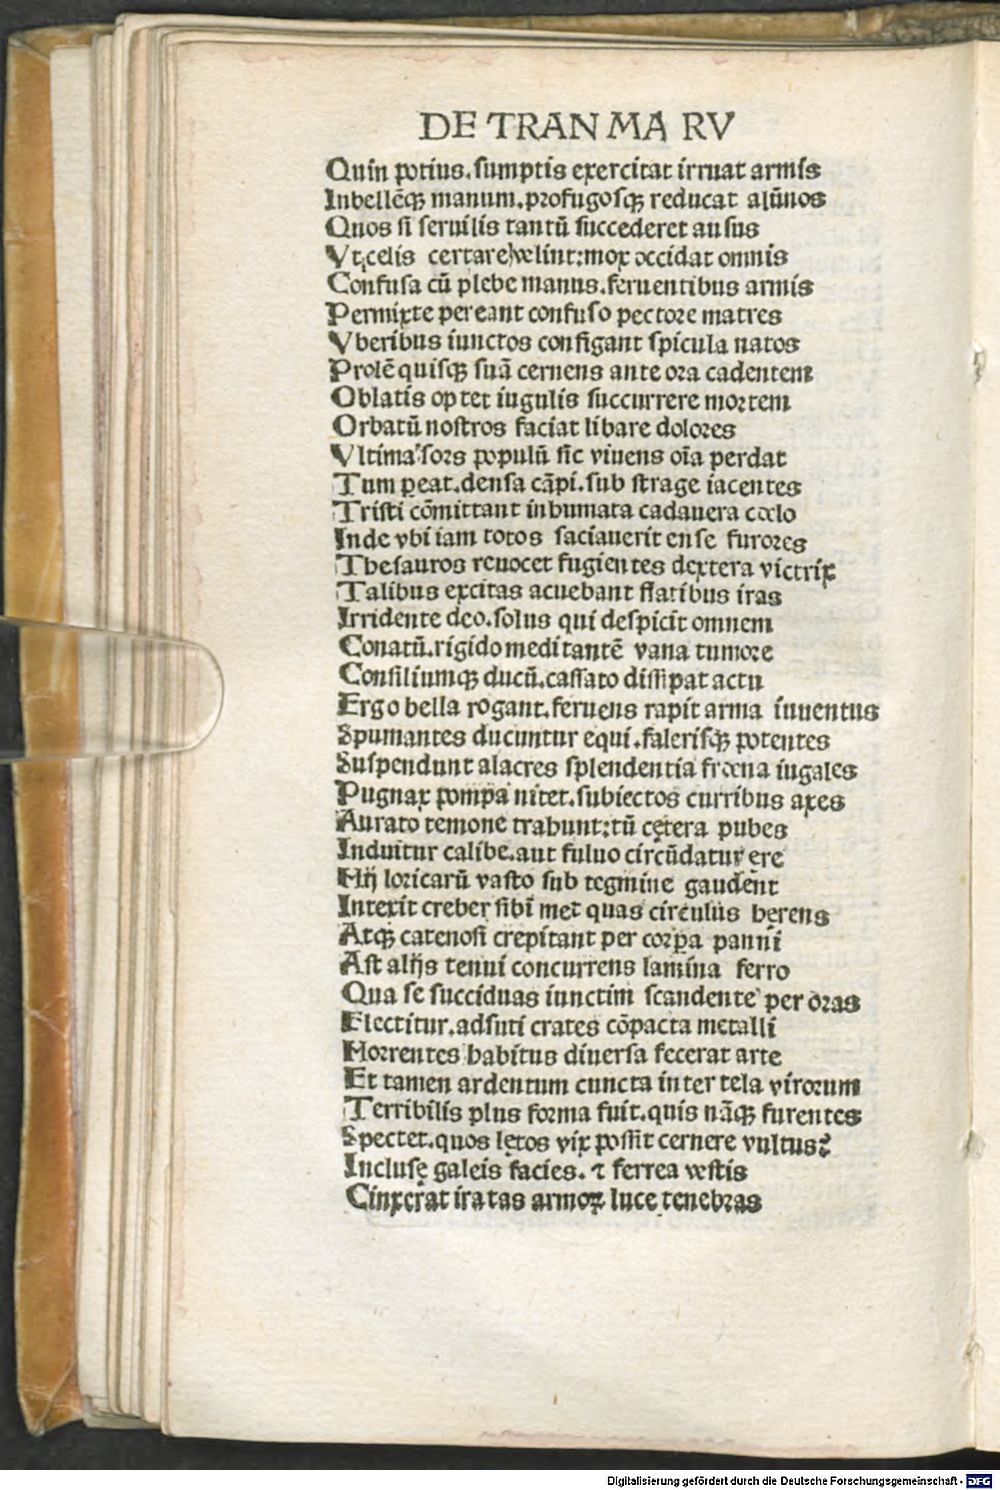 DE TRAN MA RV
Quin potius. sumptis exercitat irruat armis
Inbellēqꝫ manum. profugosqꝫ reducat alūnos
Quos si seruilis tantū succederet ausus
Vt celis certare velint: mox occidat omnis
Confusa cū plebe manus. feruentibus armis
Permixte pereant confuso pectore matres
Vberibus iunctos configant spicula natos
Prolē quisqꝫ suā cernens ante ora cadentem
Oblatis optet iugulis succurrere mortem
Orbatū nostros faciat libare dolores
Vltima sors populū sic viuens oīa perdat
Tum ꝑeat. densa cāpi. sub strage iacentes
Tristi cōmittant inhumata cadauera cœlo
Inde vbi iam totos saciauerit ense furores
Thesauros reuocet fugientes dextera victrix
Talibus excitas acuebant flatibus iras
Irridente deo. solus qui despicit omnem
Conatū. rigido meditantē vana tumore
Consiliumqꝫ ducū. cassato dissipat actu
Ergo bella rogant. feruens rapit arma iuuentus
Spumantes ducuntur equi. falerisqꝫ potentes
Suspendunt alacres splendentia frœna iugales
Pugnax pompa nitet. subiectos curribus axes
Aurato temone trahunt: tū cętera pubes
Induitur calibe. aut fuluo circūdatur ere
Hij loricarū vasto sub tegmine gaudent
Intexit creber sibi met quas circulus herens
Atqꝫ catenosi crepitant per corꝑa panni
Ast alijs tenui concurrens lamina ferro
Qua se succiduas iunctim scandente per oras
Flectitur. adsuti crates cōpacta metalli
Horrentes habitus diuersa fecerat arte
Et tamen ardentum cuncta inter tela virorum
Terribilis plus forma fuit. quis nāqꝫ furentes
Spectet. quos lętos vix possit cernere vultus?
Inclusę galeis facies. ⁊ ferrea vestis
Cinxerat iratas armoꝝ luce tenebras
Digitalisierung gefördert durch die Deutsche Forschungsgemeinschaft - DFG